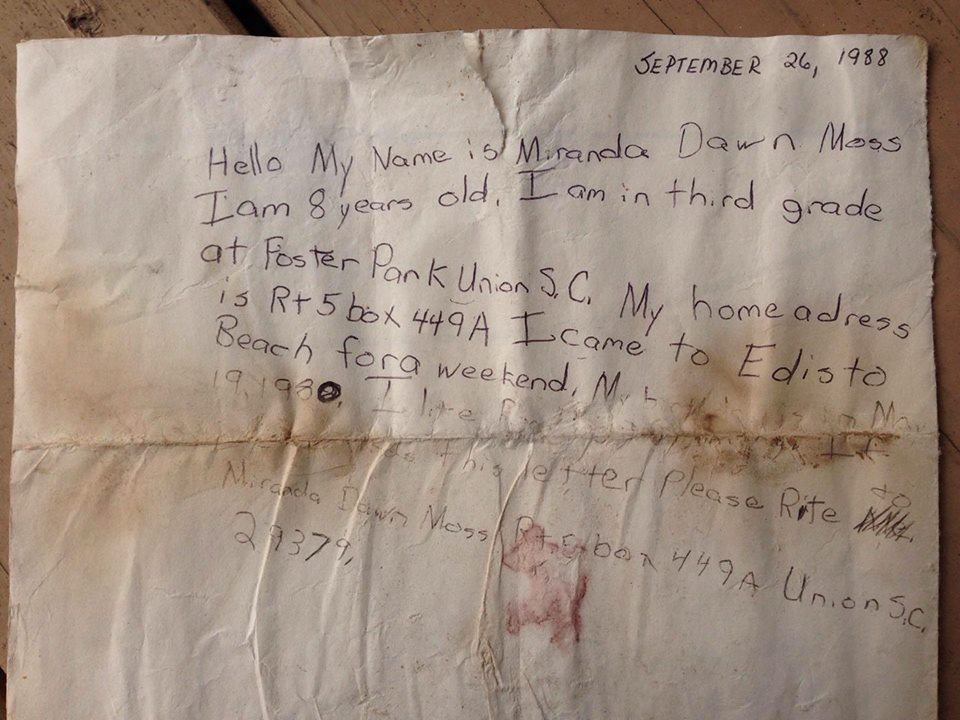 SEPTEMBER 26, 1988
Hello My Name is Miranda Dawn Moss
I am 8 years old. I am in third grade
at Foster Park Union S.C. My home adress
is Rt 5 box 449A I came to Edisto
Beach for a weekend. My
19, 1980. I like If
this letter Please Rite to
Miranda Dawn Moss Rt 5 box 449A Union S.C.
29379,